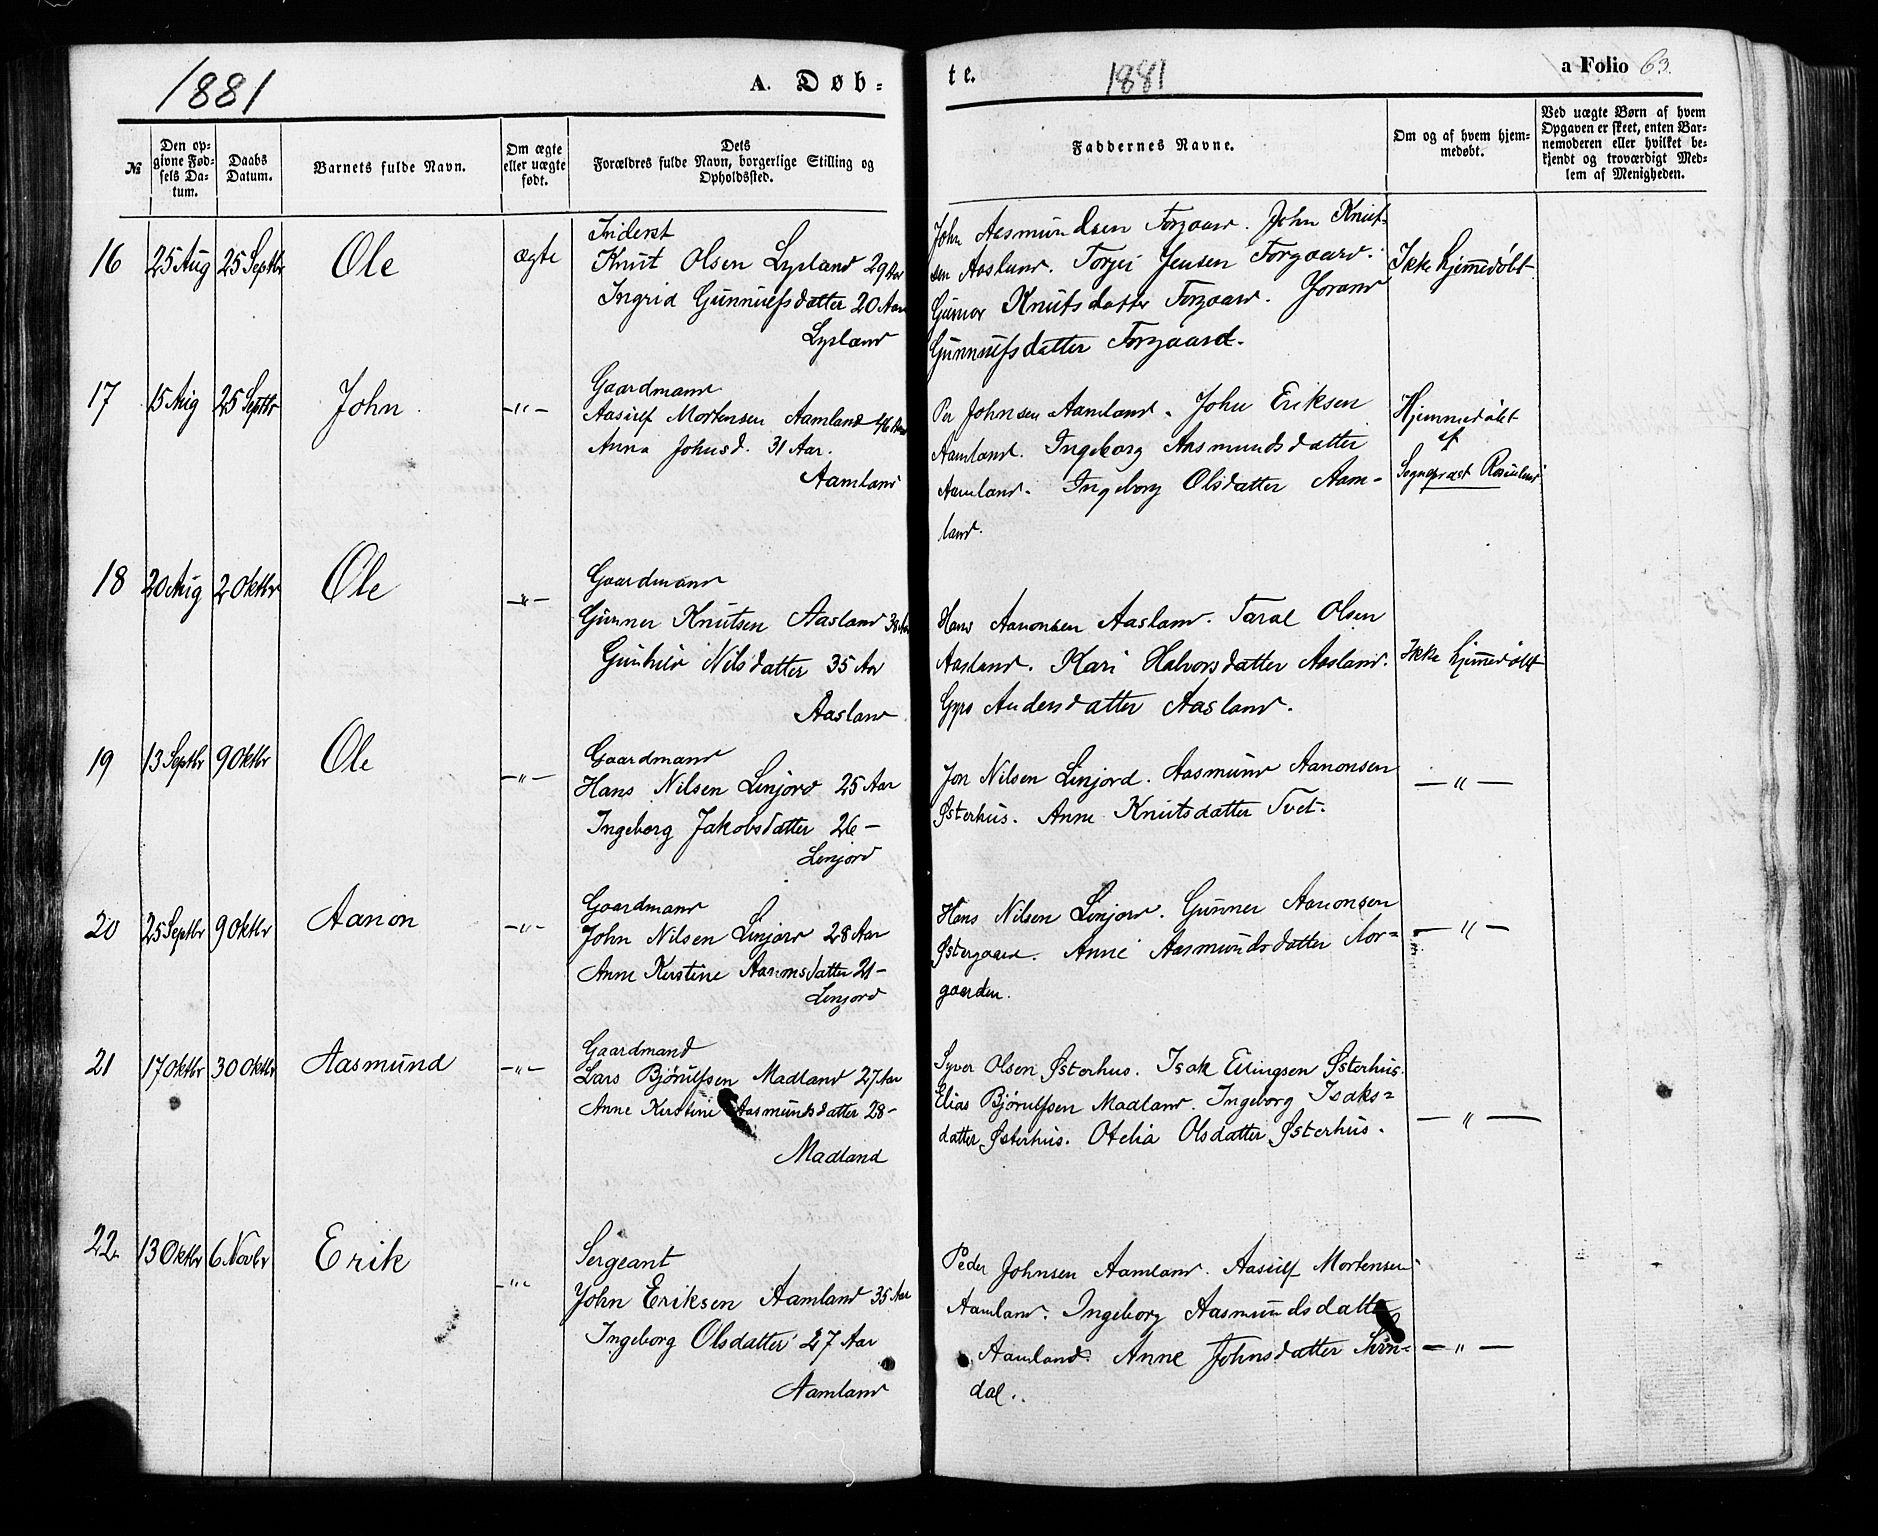 1881
A. Døb-
№
Den op-
givne Fød-
sels Da-
tum.
Daabs
Datum.
Barnets fulde Navn.
Om ægte
eller uægte
født.
Dets
Forældres fulde Navn, borgerlige Stilling og
Opholdssted.
16 25 Aug 25 Septbr Ole ægte
Inderst
Knut Olsen Lysland 29 Aar
Ingrid Gunnulfsdatter 20 Aar
Lysland
17 15 Aug 25 Septbr John -"-
Gaardmand
Aasulf Mortensen Aamland 46 Aar
Anna Johnsd. 31 Aar.
Aamland
18 20 Aug 2 Oktbr Ole -"-
Gaardmand
Gunner Knutsen Aasland Aar
Gunhild Nilsdatter 35 Aar
Aasland
19 13 Septbr 9 Oktbr Ole -"-
Gaardmand
Hans Nilsen Linjord 25 Aar
Ingeborg Jakobsdatter 26 -
Linjord
20 25 Septbr 9 Oktbr Aanon -"-
Gaardmand
John Nilsen Linjord 28 Aar
Anne Kirstine Aanonsdatter 21 -
Linjord
21 17 Oktbr 30 Oktbr Aasmund -"-
Gaardmand
Lars Bjørulfsen Madland 27 Aar
Anne Kirstine Aasmundsdatter 28 -
Madland
22. 13 Oktbr 6 Novbr Erik -"-
Sergeant
John Eriksen Aamland 35 Aar
Ingeborg Olsdatter 27 Aar
Aamland
te.
1881
a Folio 63.
Faddernes Navne.
Om og af hvem hjem-
medøbt.
Ved uægte Børn af hvem
Opgaven er skeet, enten Bar-
nemoderen eller hvilket be-
kjendt og troværdigt Med-
lem af Menigheden.
John Aasmundsen Torgaard. John Knut-
sen Aasland. Torjei Jensen Torgaard.
Gunvor Knutsdatter Torgaard. Jorand
Gunnulfsdatter Torgaard.
Ikke hjemmedøbt
Per Johnsen Aamland. John Eriksen
Aamland. Ingeborg Aasmundsdatter
Aamland. Ingeborg Olsdatter Aam-
land.
Hjemmedøbt
af
Sognepræst
Hans Aanonsen Aasland. Taral Olsen
Aasland. Kari Halvorsdatter Aasland.
Gyro Andersdatter Aasland.
Ikke hjemmedøbt
Jon Nilsen Linjord. Aasmund Aanonsen
Østerhus. Anne Knutsdatter Tvet.
- " -
Hans Nilsen Linjord. Gunner Aanonsen
Østergaard. Anne Aasmundsdatter Nor-
gaarden.
- " -
Syver Olsen Østerhus. Isak Ellingsen Østerhus.
Elias Bjørulfsen Madland. Ingeborg Isaks-
datter Østerhus. Otelia Olsdatter Østerhus.
- " -
Peder Johnsen Aamland. Aasulf Mortensen
Aamland. Ingeborg Aasmundsdatter
Aamland. Anne Johnsdatter
dal.
- " -